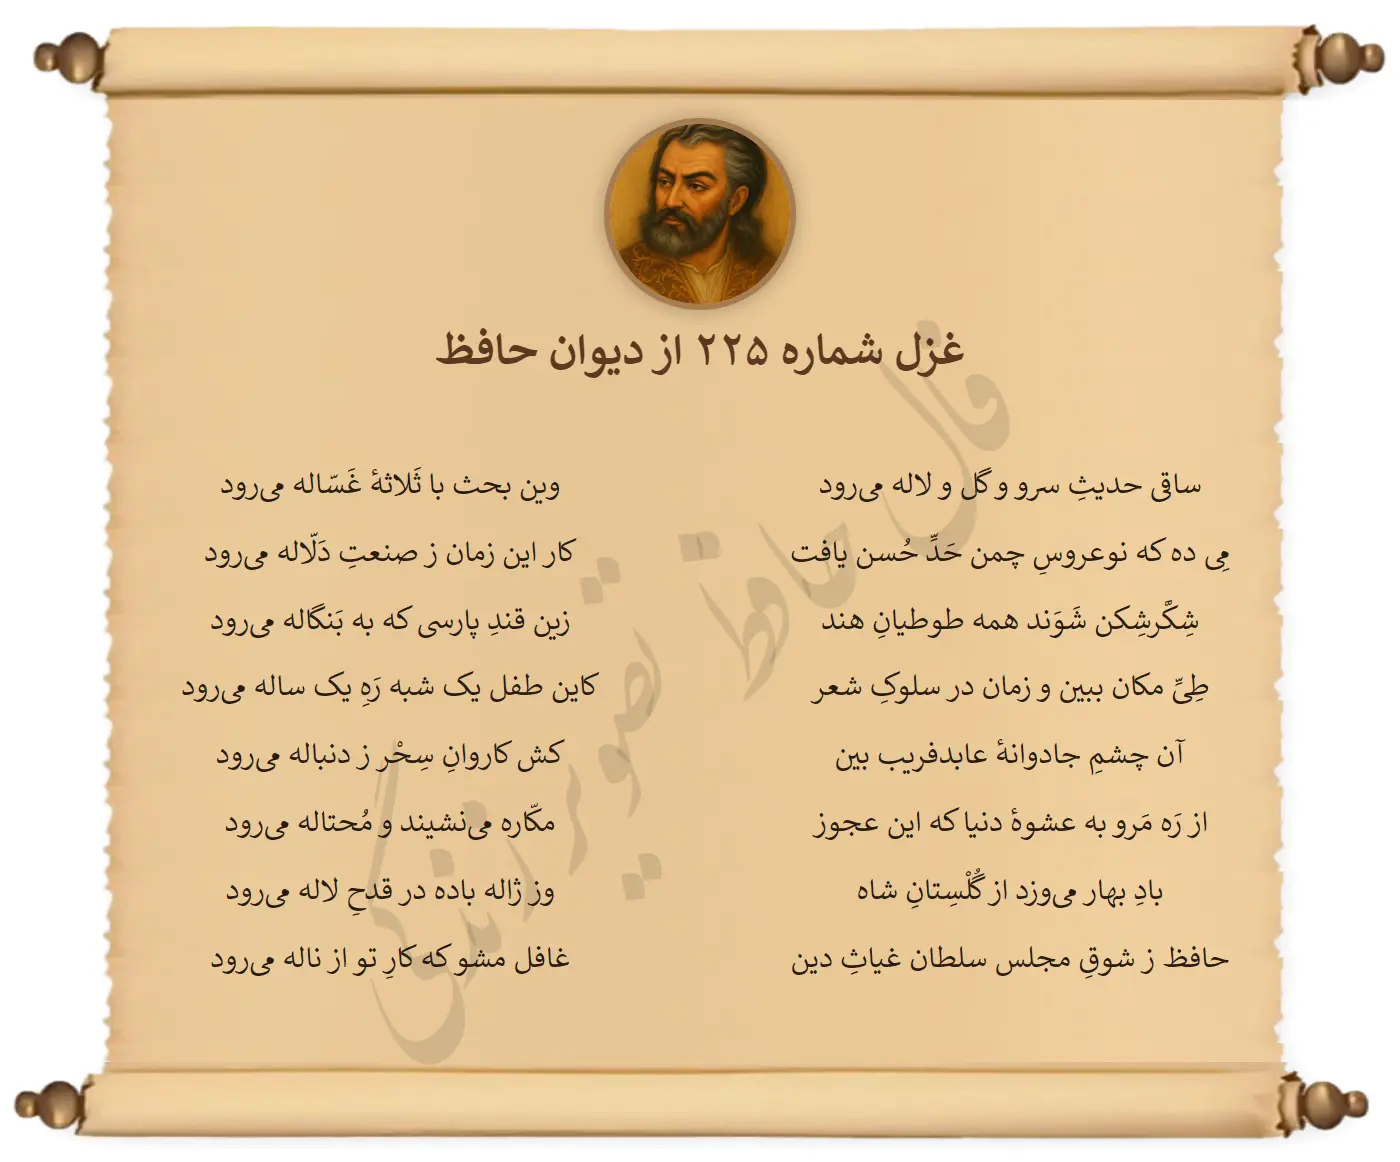 غزل شماره ۲۲۵ از دیوان حافظ
ساقی حدیثِ سرو و گل و لاله می‌رود
وین بحث با ثَلاثهٔ غَسّاله می‌رود
مِی ده که نوعروسِ چمن حَدِّ حُسن یافت
کار این زمان ز صنعتِ دَلّاله می‌رود
شِکَّرشِکن شَوَند همه طوطیانِ هند
زین قندِ پارسی که به بَنگاله می‌رود
طِیِّ مکان ببین و زمان در سلوکِ شعر
کاین طفل یک شبه رَهِ یک ساله می‌رود
آن چشمِ جادوانهٔ عابدفریب بین
کش کاروانِ سِحْر ز دنباله می‌رود
از رَه مَرو به عشوهٔ دنیا که این عجوز
مکّاره می‌نشیند و مُحتاله می‌رود
بادِ بهار می‌وزد از گُلْسِتانِ شاه
وز ژاله باده در قدحِ لاله می‌رود
حافظ ز شوقِ مجلس سلطان غیاثِ دین
غافل مشو که کارِ تو از ناله می‌رود
فال حافظ تصویر زندگی